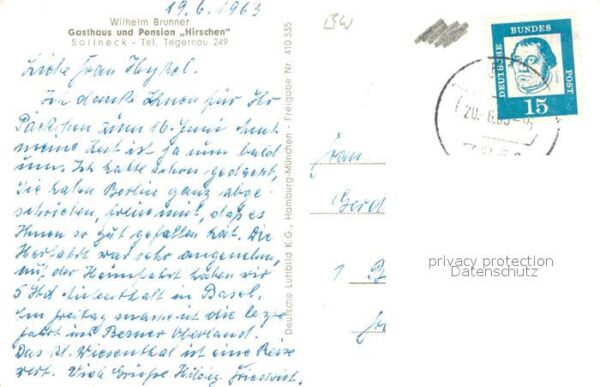 19.6.1963
Wilhelm Brunner
Gasthaus und Pension „Hirschen"
Sallneck - Tel. Tegernau 249
Liebe Frau
Ich danke Ihnen für Ihr
Päckchen zum 16. Juni
meine Zeit ist ja nun bald
um. Ich hatte schon gedacht,
Sie haben Berlin ganz abge-
schrieben, freue mich, daß es
Ihnen so gut gefallen hat. Die
Herfahrt war sehr angenehm,
auf der Heimfahrt haben wir
5 Std. Aufenthalt in Basel.
Am Freitag machen wir die letzte
Fahrt ins Berner Oberland.
Das kl. Wiesenthal ist eine Reise
wert. Viele Grüße
Deutsche Luftbild K G., Hamburg-München - Freigabe Nr. 410 535
BW
DEUTSCHE BUNDES POST
15
20.-6.63-18
Frau
Gerd
1 B
privacy protection
Datenschutz